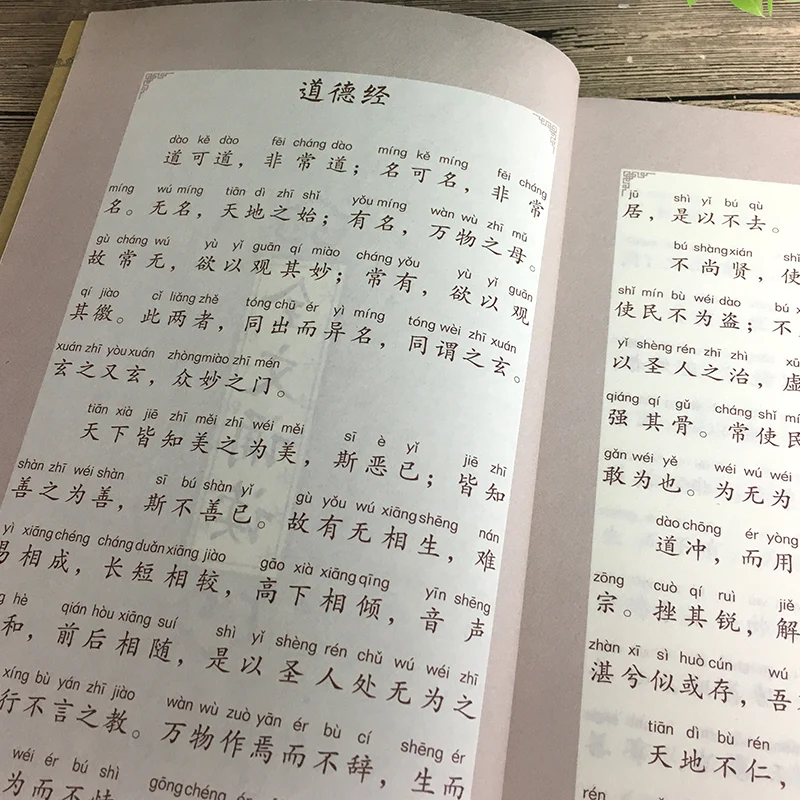 道德经
dào kě dào fēi cháng dào míng kě míng fēi cháng
道可道，非常道；名可名，非常
míng wú míng tiān dì zhī shǐ yǒu míng wàn wù zhī mǔ
名。无名，天地之始；有名，万物之母。
gù cháng wú yù yǐ guān qí miào cháng yǒu yù yǐ guān
故常无，欲以观其妙；常有，欲以观
qí jiào cǐ liǎng zhě tóng chū ér yì míng tóng wèi zhī xuán
其徼。此两者，同出而异名，同谓之玄。
xuán zhī yòu xuán zhòng miào zhī mén
玄之又玄，众妙之门。
tiān xià jiē zhī měi zhī wéi měi sī è yǐ jiē zhī
天下皆知美之为美，斯恶已；皆知
shàn zhī wéi shàn sī bú shàn yǐ gù yǒu wú xiāng shēng nán
善之为善，斯不善已。故有无相生，难
yì xiāng chéng cháng duǎn xiāng jiào gāo xià xiāng qīng yīn shēng
易相成，长短相较，高下相倾，音声
hè qián hòu xiāng suí shì yǐ shèng rén chǔ wú wéi zhī
和，前后相随，是以圣人处无为之
xíng bù yán zhī jiào wàn wù zuò yān ér bù cí shēng ér
行不言之教。万物作焉而不辞，生而
wéi ér bú shì gōng chéng ér
为而不恃
jū shì yǐ bú qù
居，是以不去。
bú shàng xián
不尚贤，使
shǐ mín bù wéi dào bú
使民不为盗；不
yǐ shèng rén zhī zhì
以圣人之治，虚
qiáng qí gǔ cháng shǐ
强其骨。常使民
gǎn wéi yě wéi wú wéi
敢为也。为无为
dào chōng ér yòng
道冲，而用
zōng cuò qí ruì jiě
宗。挫其锐，解
zhàn xī sì huò cún wú
湛兮似或存，吾
tiān dì bù rén
天地不仁，
rén